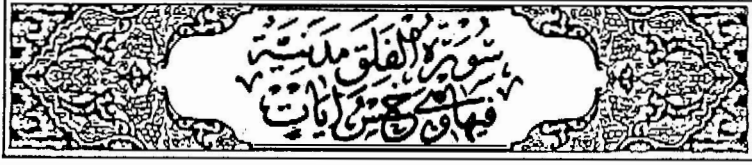 سُورَةُ الْفَلَقِ مَدَنِيَّةٌ
وَفِيهَا خَمْسُ آيَاتٍ